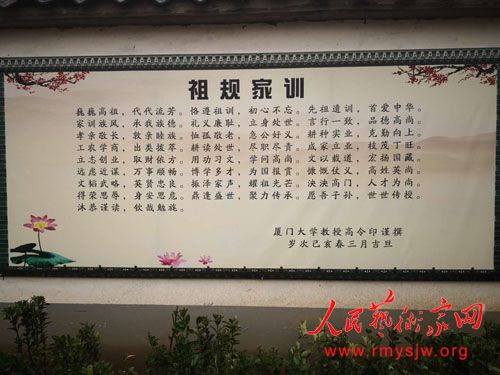 祖规家训
巍巍高祖，代代流芳。恪遵祖训，初心不忘。先祖遗训，首爱中华。
家训族风，承我族德。礼义廉耻，立身处世。言行合一，品德高尚。
孝亲敬长，敦亲睦族。恤孤敬老，急公好义。耕种实业，克勤向上。
工农学商，出类拔萃。耕读处世，尽职尽责。成家立业，枝茂丁旺。
立志创业，取财依方。用功习文，学问高尚。文以载道，宏扬国藏。
远虑近谋，万事顺畅。博学多才，为国报赏。慷慨仗义，高姓英尚。
文韬武略，英贤忠良。振泽家声，耀祖光芒。泱泱高门，人才为尚。
得荣思辱，身安思危。鼎逢盛世，聚力传承。愿吾子孙，世世传授。
沐恭谨读，钦哉勉旃。
厦门大学教授高令印谨撰
岁次己亥春三月吉旦
人民艺术家网
www.rmysjw.org